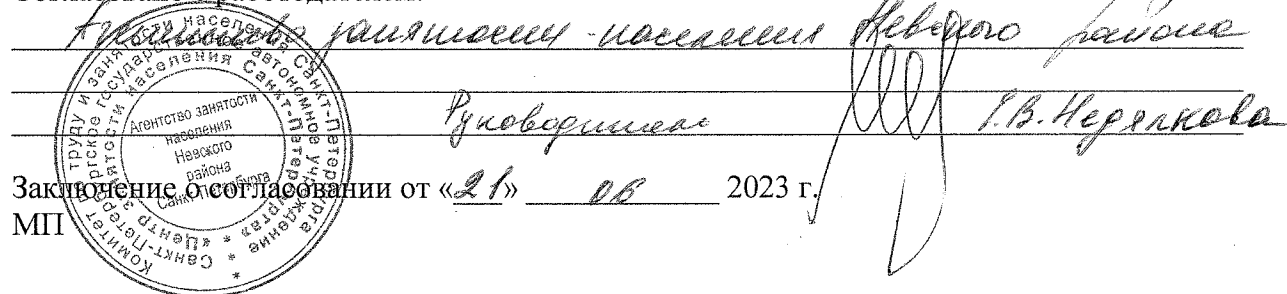 Агентство занятости населения Невского района
Руководитель Г.В. Недялкова
Заключение о согласовании от «21» 06 2023 г.
МП
Комитет по труду и занятости населения Санкт-Петербурга
Санкт-Петербургское государственное автономное учреждение
«Центр занятости населения Санкт-Петербурга»
Агентство занятости
населения
Невского
района
Санкт-Петербурга